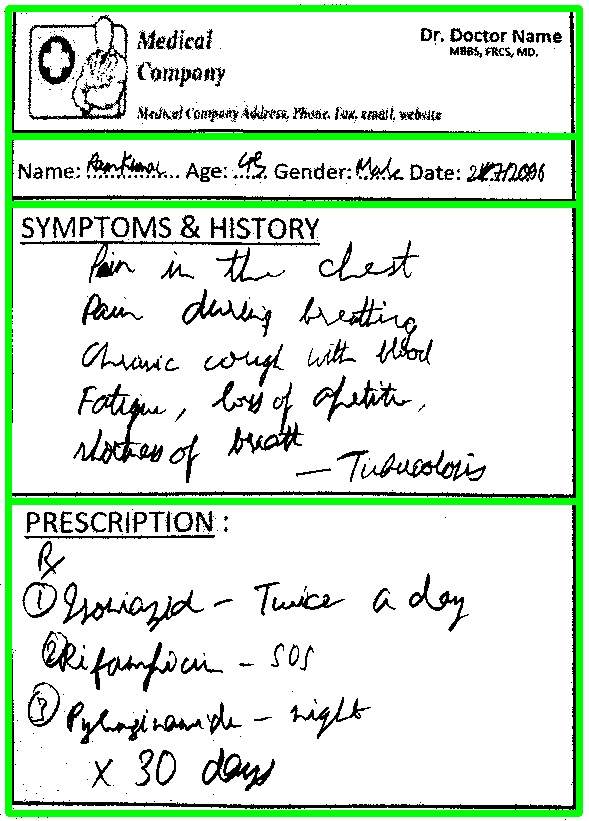 Medical
Company
Dr. Doctor Name
MBBS, FRCS, MD.
Medical Company Address, Phone, Fax, email, website
Name: Ram Kumar Age: Gender: Male Date:
SYMPTOMS & HISTORY
Pain in the chest
Pain during breathing
Chronic cough with blood
Fatigue, loss of apetite,
shortness of breath
— Tuberculosis
PRESCRIPTION :
Rx
① Isoniazid - Twice a day
② Rifampicin - SOS
③ Pyrazinamide - night
x 30 days